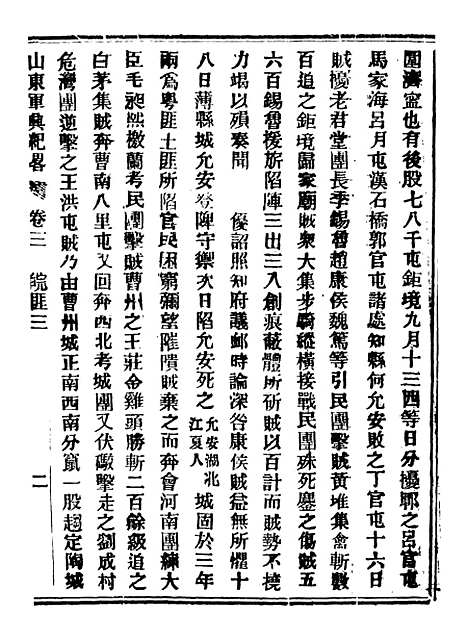 圍濟寧也有後股七八千屯鉅境九月十三四等日分擾鄆之呂官屯
馬家海呂月屯漢石橋郭官屯諸處知縣何允安敗之丁官屯十六日
賊擾老君堂團長李錫魯趙康侯魏篤等引民團擊賊黃堆集禽斬數
百追之鉅境歸家廟賊眾大集步騎縱橫接戰民團殊死鏖之傷賊五
六百錫魯援旂陷陣三出三入創痕蔽體所斫賊以百計而賊勢不撓
力竭以殞奏聞　優詔照知府議邮時論深咎康侯賊益無所憚十
八日薄縣城允安登陴守禦次日陷允安死之允安湖北江夏人城固於三年
兩爲粵匪土匪所陷官民困窮彌望隤賊棄之而奔會河南團練大
臣毛昶熙檄蘭考民團擊賊曹州之王莊金雞頭勝斬二百餘級追之
白茅集賊奔曹南八里屯又回奔西北考城團又伏礮擊走之劉成村
危灣團逆擊之王洪屯賊乃由曹州城正南西南分竄一股趨定陶城
山東軍興紀畧　卷三　皖匪三　二